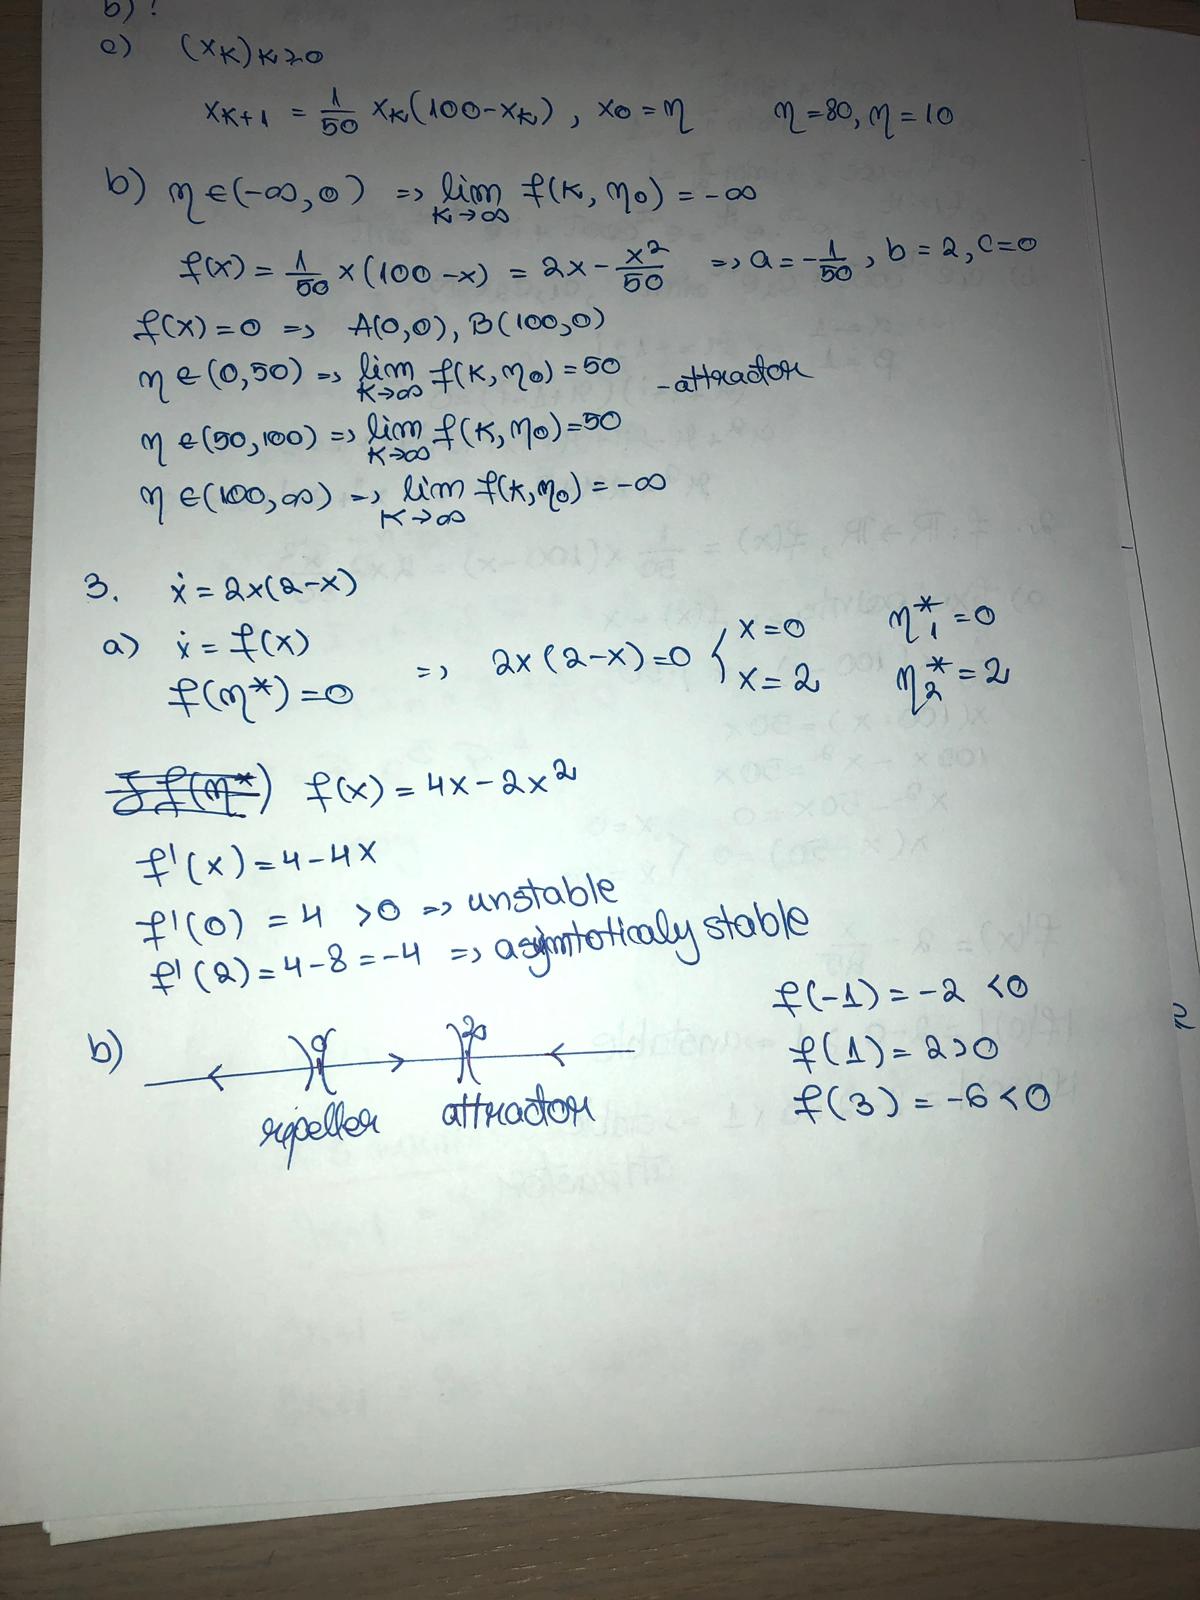 b) !
c) (xk)k≥0
xk+1 = 1/50 xk(100-xk), x0 = η η=80, η=10
b) η∈(-∞,0) => lim k→∞ f(k, η0) = -∞
f(x) = 1/50 x(100-x) = 2x - x²/50 => a = -1/50, b = 2, c=0
f(x)=0 => A(0,0), B(100,0)
η∈(0,50) => lim k→∞ f(k, η0) = 50 - attractor
η∈(50,100) => lim k→∞ f(k, η0)=50
η∈(100,∞) => lim k→∞ f(k, η0) = -∞
3. ẋ = 2x(2-x)
a) ẋ = f(x)
f(η*) = 0 => 2x(2-x)=0 { x=0 η1* = 0
x=2 η2* = 2
f(x) = 4x - 2x²
f'(x) = 4-4x
f'(0) = 4 >0 => unstable
f'(2) = 4-8 = -4 => asymtoticaly stable
f(-1) = -2 <0
b) 0
f(1) = 2>0
ripeller attractor f(3) = -6<0